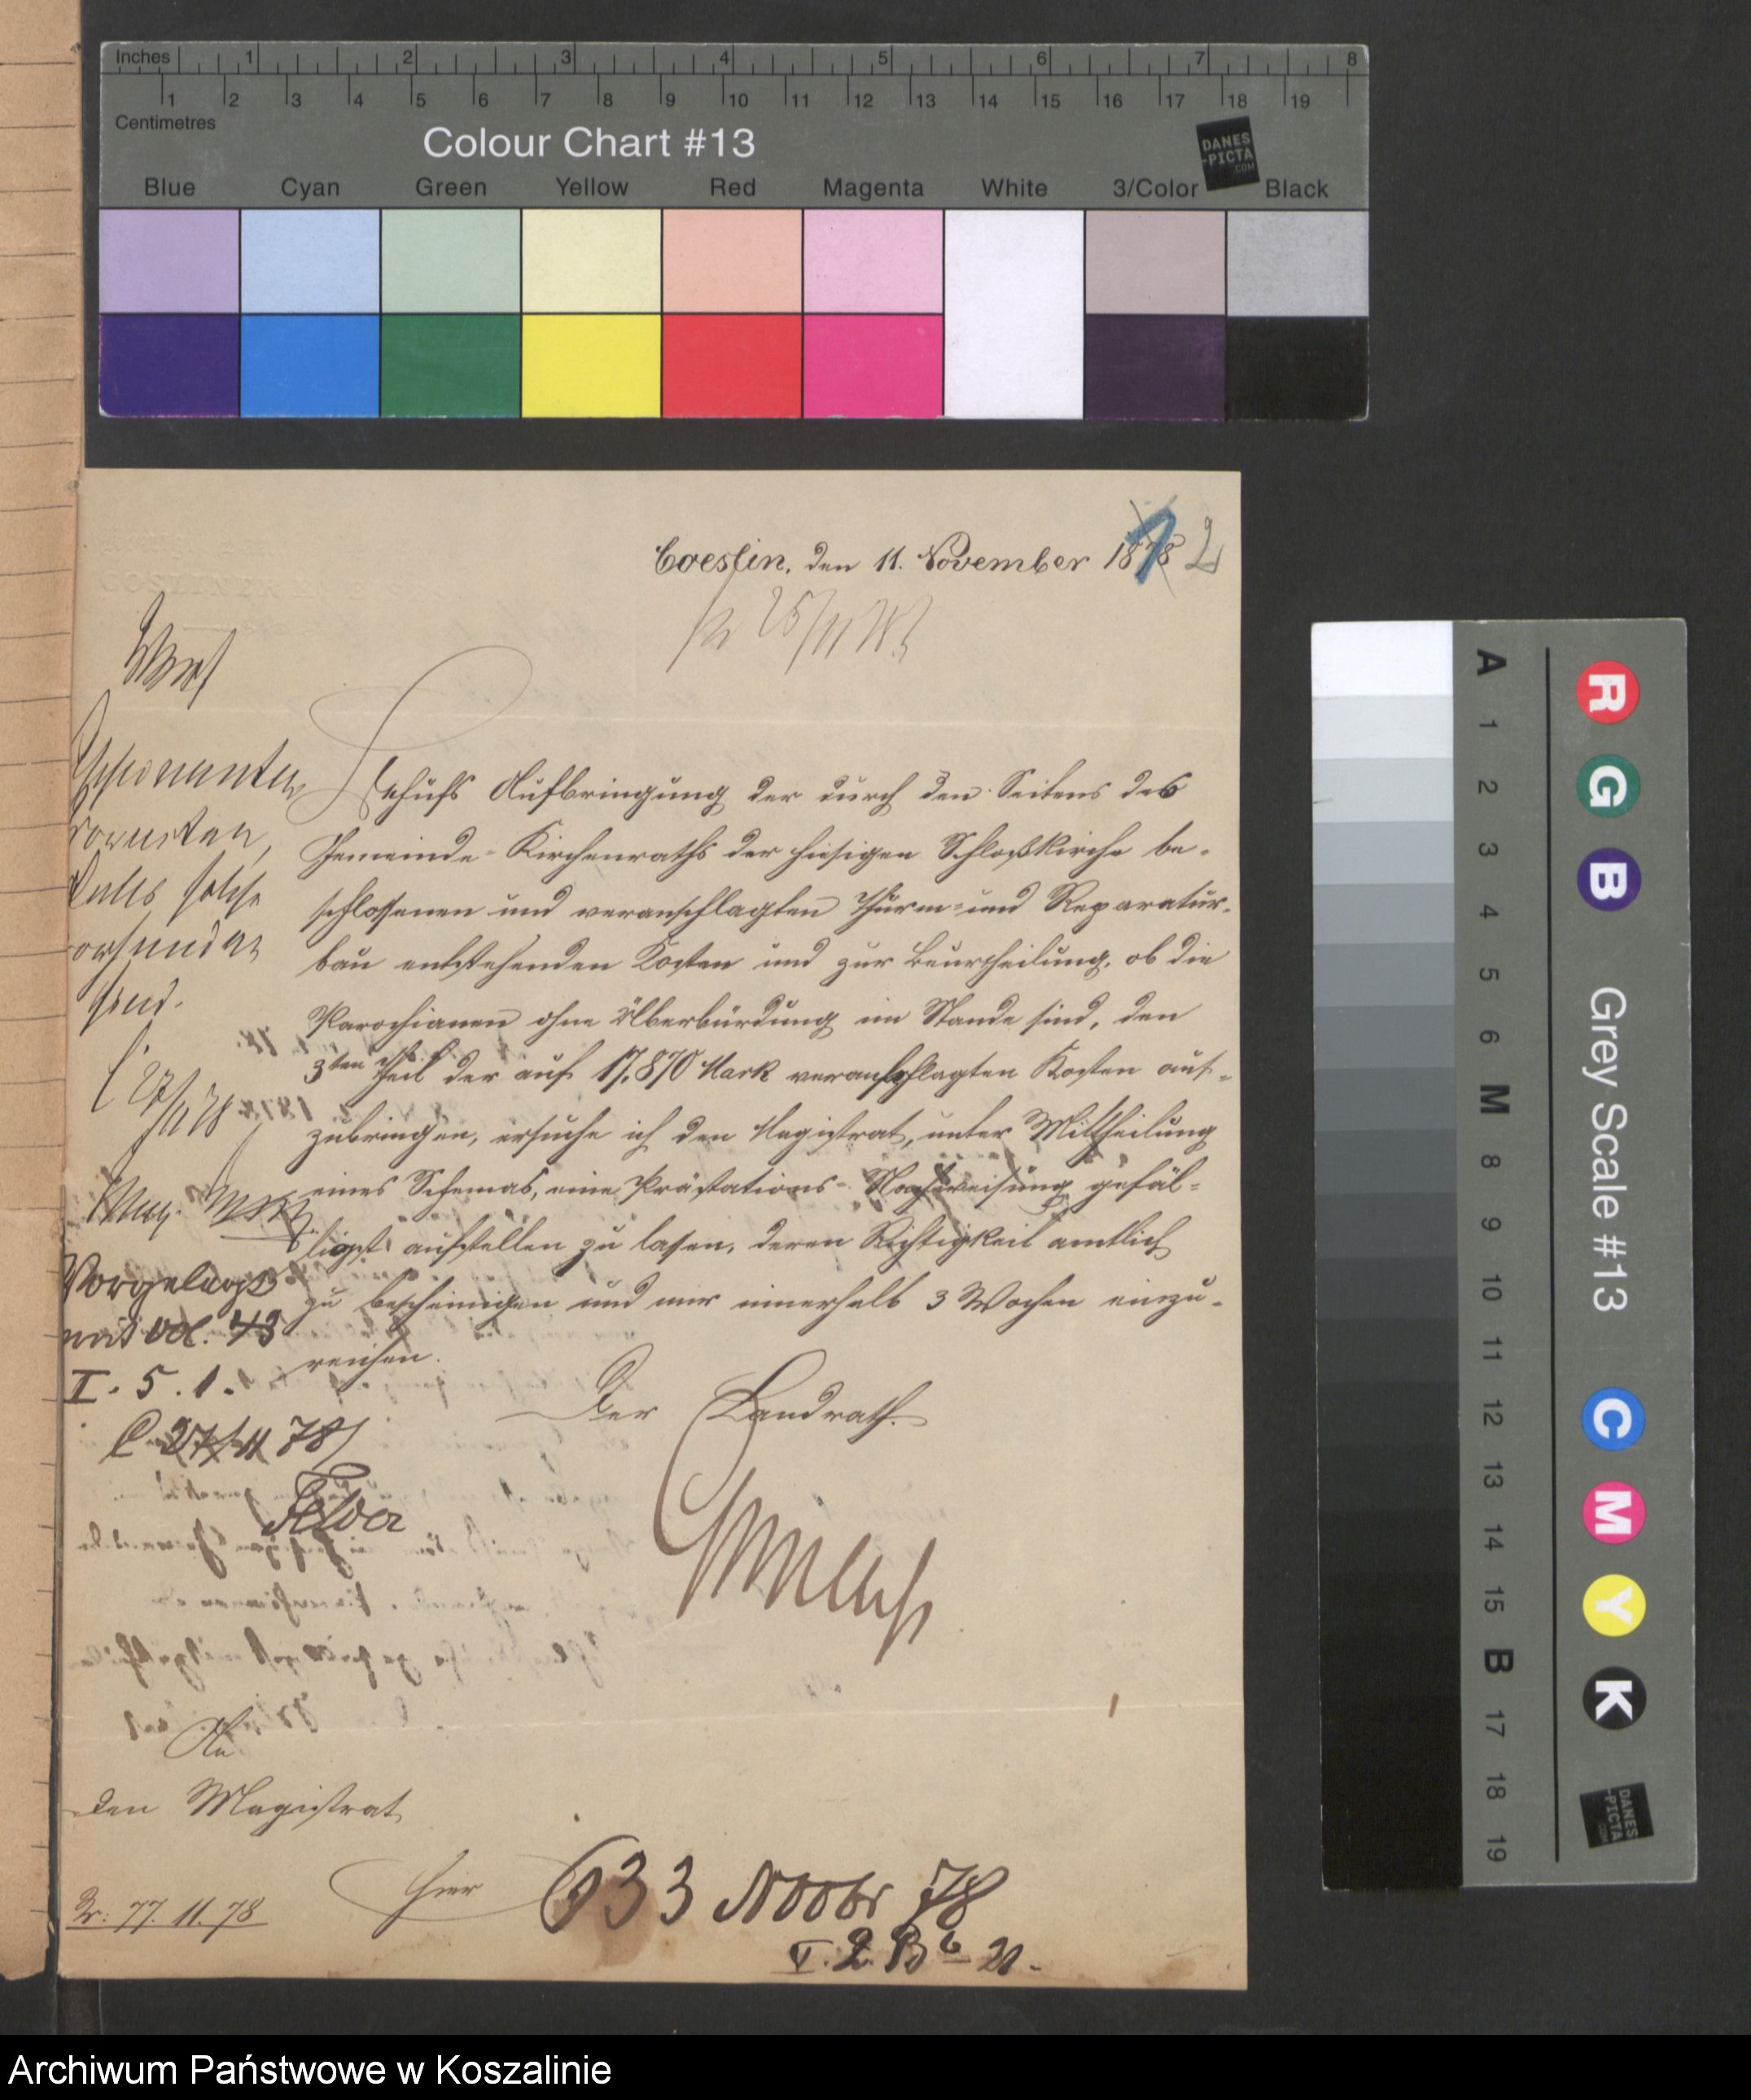 Inches 1 2 3 4 5 6 7 8
1 2 3 4 5 6 7 8 9 10 11 12 13 14 15 16 17 18 19
Centimetres
Colour Chart #13
DANES
-PICTA
.COM
Blue Cyan Green Yellow Red Magenta White 3/Color Black
Coeslin, den 11. November 1878
1 2
25/11 78
Behufs Aufbringung der durch den Seitens des
Gemeinde-Kirchenraths der hiesigen Schloßkirche be-
schlossenen und veranschlagten Thurm- und Reparatur-
bau entstehenden Kosten und zur Beurtheilung, ob die
Parochianen ohne Überbürdung im Stande sind, den
3ten Theil der auf 17,870 Mark veranschlagten Kosten auf-
zubringen, ersuche ich den Magistrat, unter Mittheilung
eines Schemas, eine Prästations-Nachweisung gefäl-
ligst aufstellen zu lassen, deren Richtigkeit amtlich
zu bescheinigen und mir innerhalb 3 Wochen einzu-
reichen.
Der Landrath.
solche
sind.
27/11 78
Mag.
Vorgelegt
mit vol. 43
I. 5. 1.
C 27/11 78
An
den Magistrat
hier
77. 11. 78
633 Novbr 78
V. 2. B 6 21.
A 1 2 3 4 5 6 M 8 9 10 11 12 13 14 15 B 17 18 19
R G B
Grey Scale #13
C M Y K
DANES
-PICTA
.COM
Archiwum Państwowe w Koszalinie